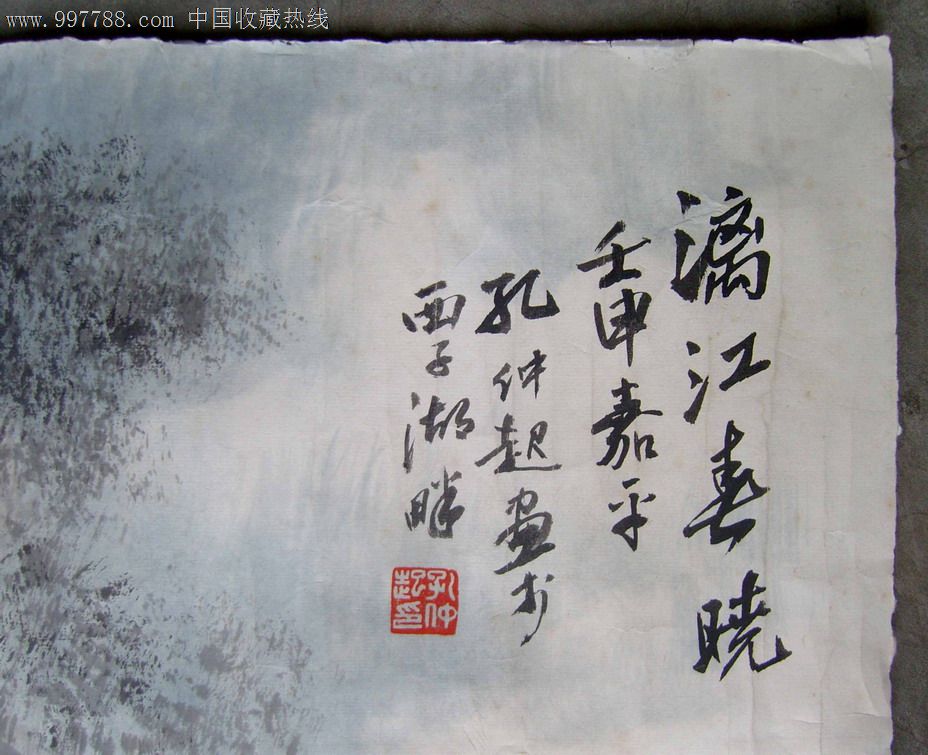 www.997788.com 中国收藏热线
漓江春晓
壬申嘉平
孔仲起画於
西子湖畔
孔仲
起印